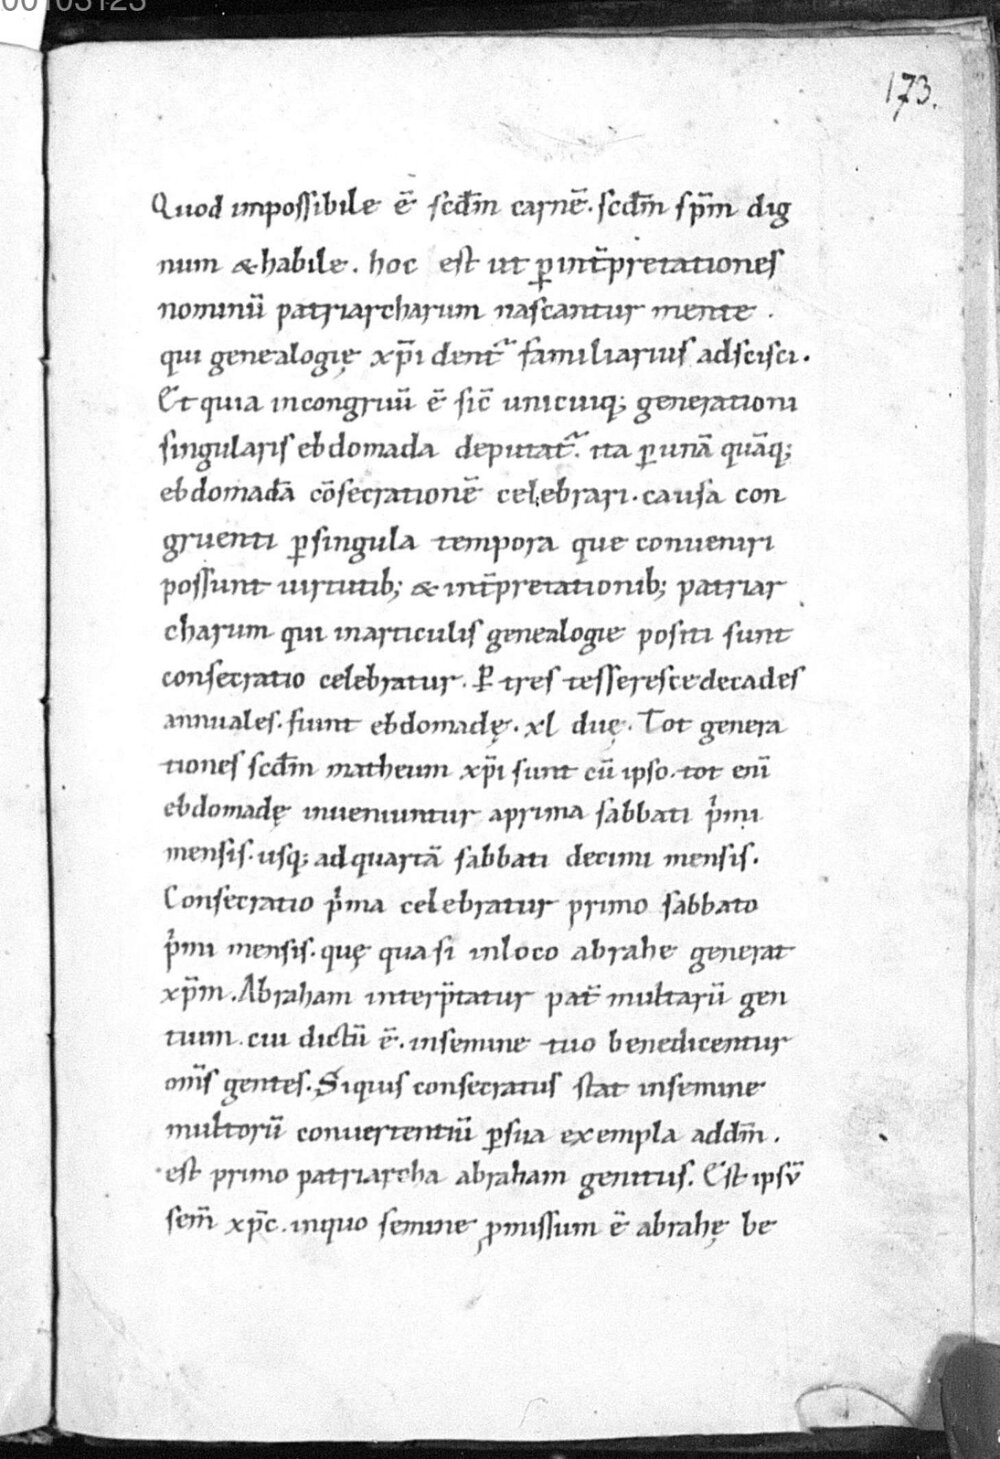 00103123
173.
Quod impossibile ē scd̄m carnē. scd̄m sp̄m dig
num & habile. hoc est ut ꝑ int̄pretationes
nominū patriarcharum nascantur mente.
qui genealogię xp̄i dent᷑ familiarius adscisci.
Et quia incongruū ē sic̄ unicuiq; generationi
singularis ebdomada deputat᷑. ita ꝑ unā quāq;
ebdomadā cōsecrationē celebrari. causa con
gruenti ꝑ singula tempora que conueniri
possunt uirtutib; & int̄pretationib; patriar
charum qui in articulis genealogie positi sunt
consecratio celebratur. Ꝑ tres tesseresce decades
annuales. fiunt ebdomadę. xl duę. Tot genera
tiones scd̄m matheum xp̄i sunt cū ipso. tot enī
ebdomadę inueniuntur a prima sabbati p̍mi
mensis. usq; ad quartā sabbati decimi mensis.
Consecratio p̍ma celebratur primo sabbato
p̍mi mensis. quę quasi in loco abrahe generat
xp̄m. Abraham interp̄tatur pat̄ multarū gen
tium. cui dictū ē. in semine tuo benedicentur
om̄s gentes. Siquis consecratus stat in semine
multorū conuertentiū ꝑ sua exempla ad dm̄.
est primo patriarcha abraham genitus. Est ipsū
sem̄ xp̄c. in quo semine ꝓmissum ē abrahę be